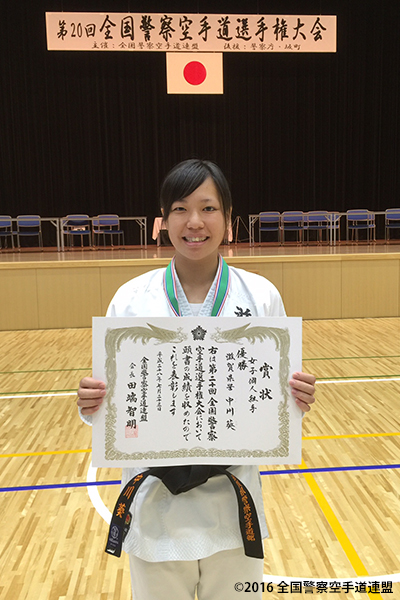 第20回 全国警察空手道選手権大会
主催:全国警察空手道連盟 後援:警察庁・
賞状
女子個人組手
優勝
滋賀県警 中川葵
右は第二十回全国警察
空手道選手権大会において
頭書の成績を収めたので
これを表彰します
平成二十八年七月二十二日
全国警察空手道連盟
会長 田端智明
©2016 全国警察空手道連盟